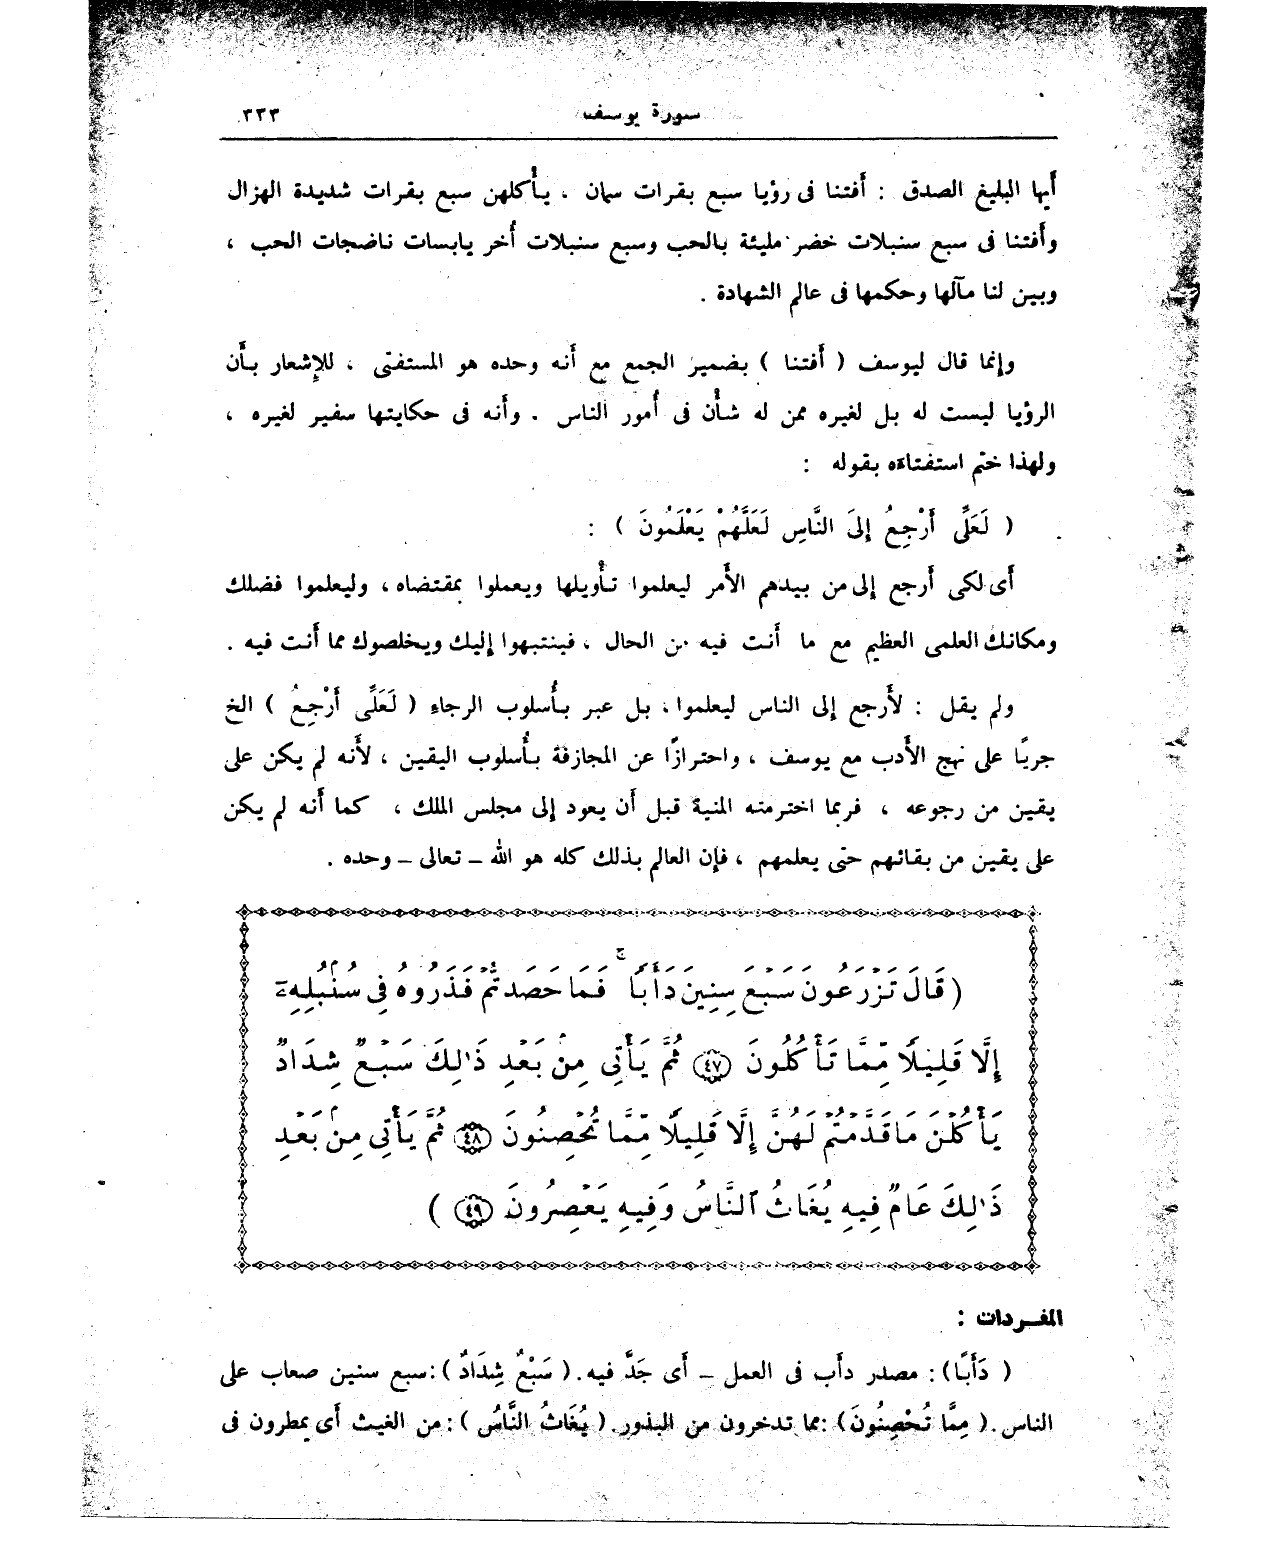 سورة يوسف ٣٣٣
أيها البليغ الصدق : أفتنا فى رؤيا سبع بقرات سمان ، يأكلهن سبع بقرات شديدة الهزال
وأفتنا فى سبع سنبلات خضر مليئة بالحب وسبع سنبلات أُخر يابسات ناضجات الحب ،
وبين لنا مآلها وحكمها فى عالم الشهادة .
وإنما قال ليوسف ( أفتنا ) بضمير الجمع مع أنه وحده هو المستفتى ، للإشعار بأن
الرؤيا ليست له بل لغيره ممن له شأن فى أُمور الناس . وأنه فى حكايتها سفير لغيره ،
ولهذا ختم استفتاءه بقوله :
( لَعَلِّى أَرْجِعُ إِلَى النَّاسِ لَعَلَّهُمْ يَعْلَمُونَ ) :
أى لكى أرجع إلى من بيدهم الأمر ليعلموا تأويلها ويعملوا بمقتضاه ، وليعلموا فضلك
ومكانك العلمى العظيم مع ما أنت فيه من الحال ، فينتبهوا إليك ويخلصوك مما أنت فيه .
ولم يقل : لأرجع إلى الناس ليعلموا ، بل عبر بأُسلوب الرجاء ( لَعَلِّى أَرْجِعُ ) الخ
جريًا على نهج الأدب مع يوسف ، واحترازًا عن المجازفة بأُسلوب اليقين ، لأنه لم يكن على
يقين من رجوعه ، فربما اخترمته المنية قبل أن يعود إلى مجلس الملك ، كما أنه لم يكن
على يقين من بقائهم حتى يعلمهم ، فإن العالم بذلك كله هو الله – تعالى – وحده .
( قَالَ تَزْرَعُونَ سَبْعَ سِنِينَ دَأَبًا ۚ فَمَا حَصَدتُّمْ فَذَرُوهُ فِى سُنۢبُلِهِۦٓ
إِلَّا قَلِيلًا مِّمَّا تَأْكُلُونَ ٤٧ ثُمَّ يَأْتِى مِنۢ بَعْدِ ذَٰلِكَ سَبْعٌ شِدَادٌ
يَأْكُلْنَ مَا قَدَّمْتُمْ لَهُنَّ إِلَّا قَلِيلًا مِّمَّا تُحْصِنُونَ ٤٨ ثُمَّ يَأْتِى مِنۢ بَعْدِ
ذَٰلِكَ عَامٌ فِيهِ يُغَاثُ ٱلنَّاسُ وَفِيهِ يَعْصِرُونَ ٤٩ )
المفـردات :
( دَأَبًا ) : مصدر دأب فى العمل – أى جَدَّ فيه . ( سَبْعٌ شِدَادٌ ) : سبع سنين صعاب على
الناس . ( مِمَّا تُحْصِنُونَ ) : مما تدخرون من البذور . ( يُغَاثُ النَّاسُ ) : من الغيث أى يمطرون فى